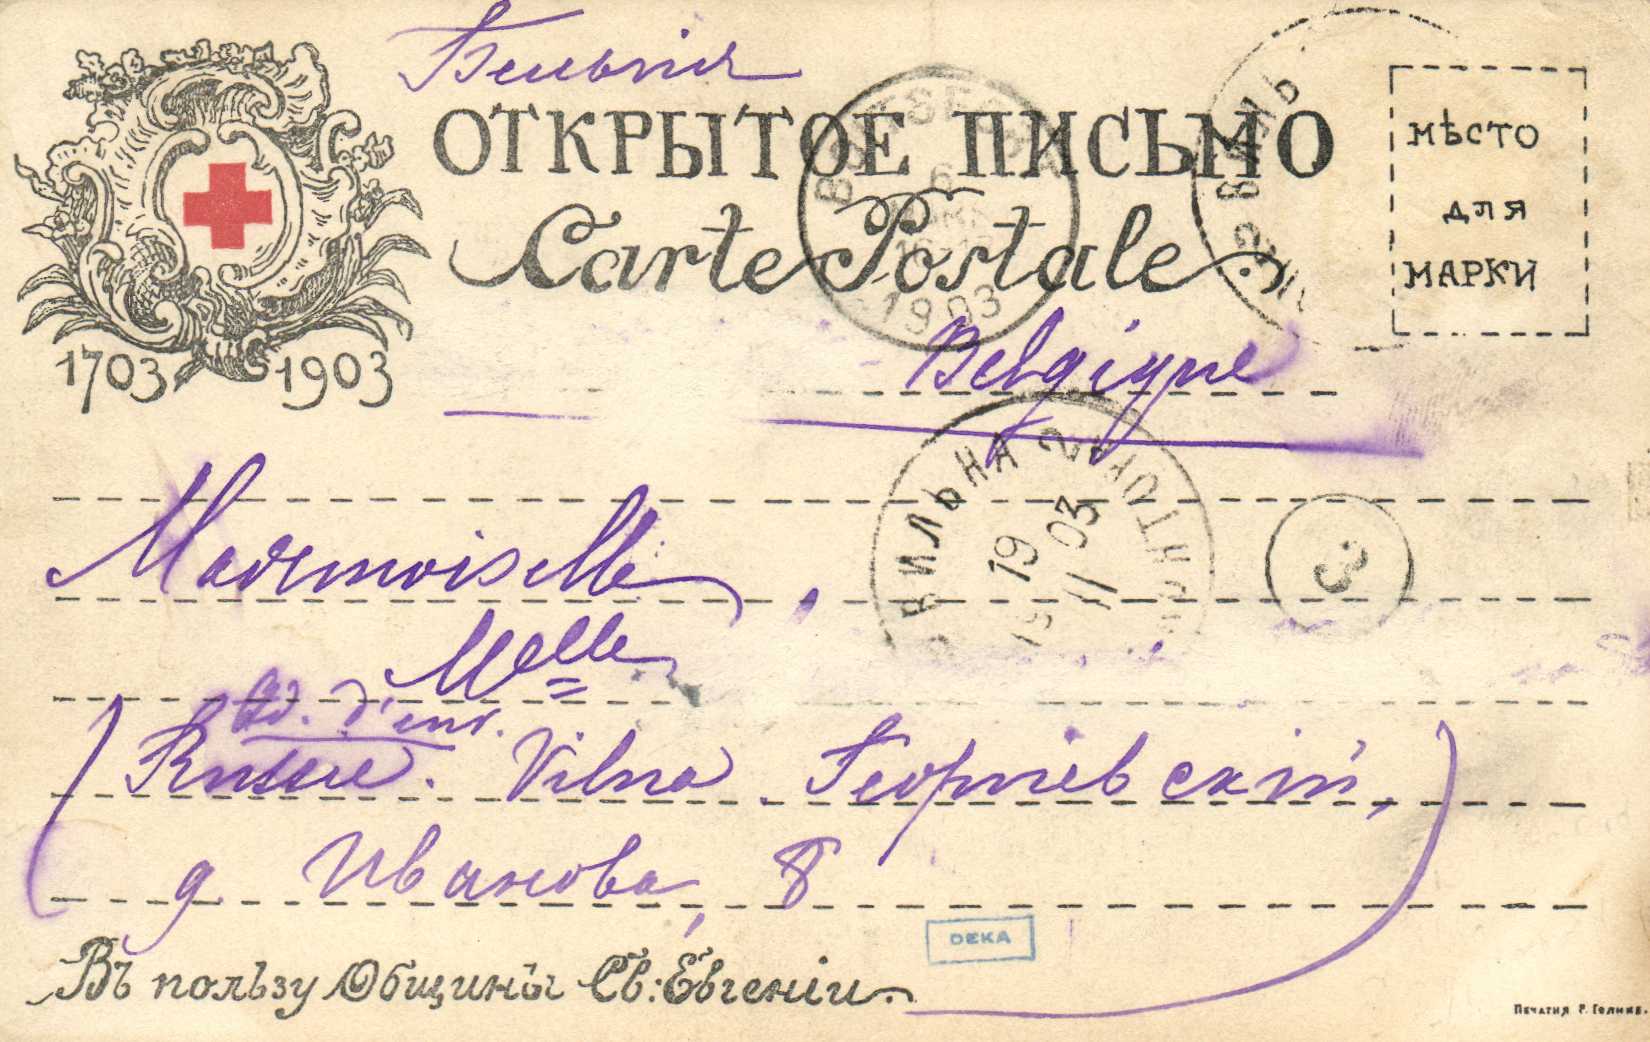 Бельгія
ОТКРЫТОЕ ПИСЬМО
Carte Postale
МѢСТО
ДЛЯ
МАРКИ
1703 1903
1903
Belgique
ВИЛЬНА 2
19
11 03
3
Mademoiselle,
Melle
Ad. d'env.
Russie. Vilna. Георгіевскій,
д Иванова, 8
DEKA
Въ пользу Общины Св: Евгеніи.
Печатня Р. Голике.